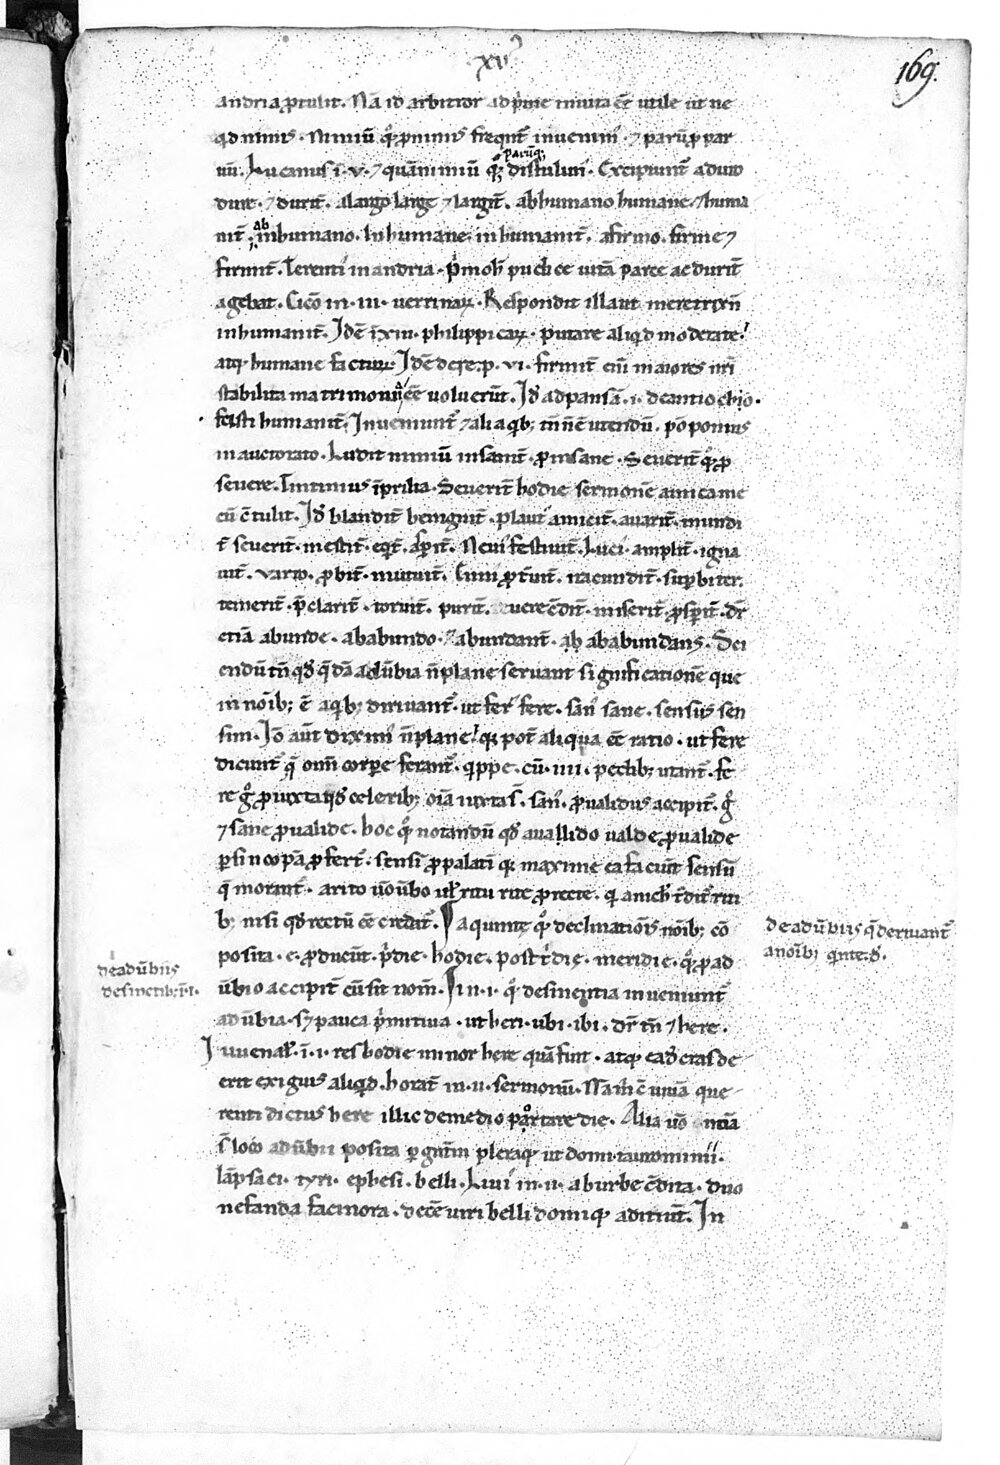 xv
169.
andria ꝓtulit. Nã id arbitror ad p̃me in uita eẽ utile ut ne
qd nimis. Nimiũ qͦꝫ ꝓ nimis freqñt̃ inuenim̃. ⁊ parũ ꝓ par
uũ. Lucanus ĩ. v. ⁊ quãnimiũ
parũqꝫ
distulim. Excipiunt̃ a duro
dure. ⁊ durit̃. a largo large ⁊ largit̃. ab humano humane. ⁊ huma
nit̃. ab inhumano. Inhumane. inhumanit̃. a firmo. firme ⁊
firmit̃. Terenti in andria. p̃mo h̃ pudice uitã parce ac durit̃
agebat. Cicõ in. iii. uerrinaꝝ. Respondit illa ut meretrix ñ
inhumanit̃. Idẽ ĩ xiii. philippicaꝝ. putare aliqd moderate
atqꝫ humane facturũ. Idẽ de re.p. vi. firmit̃ eni maiores nr̃i
stabilita matrimonia eẽ uoluerũt. Id̃ ad pansã. i. de antiochio.
fecisti humanit̃. Inueniunt̃ ⁊ alia qbꝫ tñ ñ ẽ utendũ. põponius
in auctorato. Ludit nimiũ insanit̃. ꝓ insane. Seuerit̃ qͦꝫ ꝓ
seuere. Titinius ĩ prilia. Seuerit̃ hodie sermonẽ amica me
cũ c̃tulit. Id̃ blandit̃ benignit̃. plaut̃ amicit̃. auarit̃. mundi
t̃ seuerit̃. mestit̃. eqt̃. asp̃it̃. Neui festiuit̃. Luci. amplit̃. igna
uit̃. varro. ꝓbit̃. mutuit̃. Enni ꝓt̃uit̃. iracundit̃. sup̃bit̃.
temerit̃. p̃clarit̃. toruit̃. purit̃. uerecũdit̃. miserit̃. ꝓsp̃it̃. dr̃
etiã abunde. ab abundo. ⁊ abundant̃. ab abundans. Sci
endũ tñ qd̃ q̃dã adũbia ñ plane seruant significationẽ que
in noĩbꝫ ẽ a qbꝫ diriuant̃. ut fer̃ fere. san̉ sane. sensus sen
sim. Iõ aũt diximꝰ ñ plane qꝫ pot̃ aliqua eẽ ratio. ut fere
dicunt̃ q̃ om̃i corpore ferant̃. qppe. cũ. iiii. pedibꝫ utant̃. fe
⁊ sane ꝓ ualide. hoc qͦꝫ notandũ qd̃ a uallido ualde ꝓ ualide
ꝑ sincopã ꝓfert̃. sensĩ ꝓ palatĩ qꝫ maxime ea faciunt sensũ
q̃ morant̃. a rito ũo ũbo ul̃ ritu rite ꝓ recte.
bꝫ nisi qd̃ rectũ eẽ credit̃. A quinte qͦꝫ declinatiõis noĩbꝫ cõ
posita. e. ꝓducũt. p̃die. hodie. postridie. meridie. qͦꝫ ꝓ ad
ũbio accipit̃ cũ sit nom̃. In. i. qͦꝫ desinentia inueniunt̃
adũbia. sꝫ pauca p̃mitiua. ut heri. ubi. ibi. dr̃ tñ ⁊ here.
Iuuenal̃. ĩ. i. res hodie minor here quã fuit. atqꝫ ead̃ cras de
eret exiguis aliqd. horat̃ in. ii. sermonũ. Nã m̃ c̃uiuã que
renti dictus here illic de medio potare die. Alia ũo
s̃ loco adũbii posita ꝑ gñtm̃ pleraqꝫ ut domi. tauromenii.
lãpsaci. tyri. ephesi. belli. Liui in. ii. ab urbe c̃dita. duo
nefanda facinora. decẽ uiri belli domiqꝫ adiciũt. In
de adũbiis q̃ deriuant̃
a noĩbꝫ qnte. d̃.
de adũbiis
desinẽtibꝫ. ĩ. i.